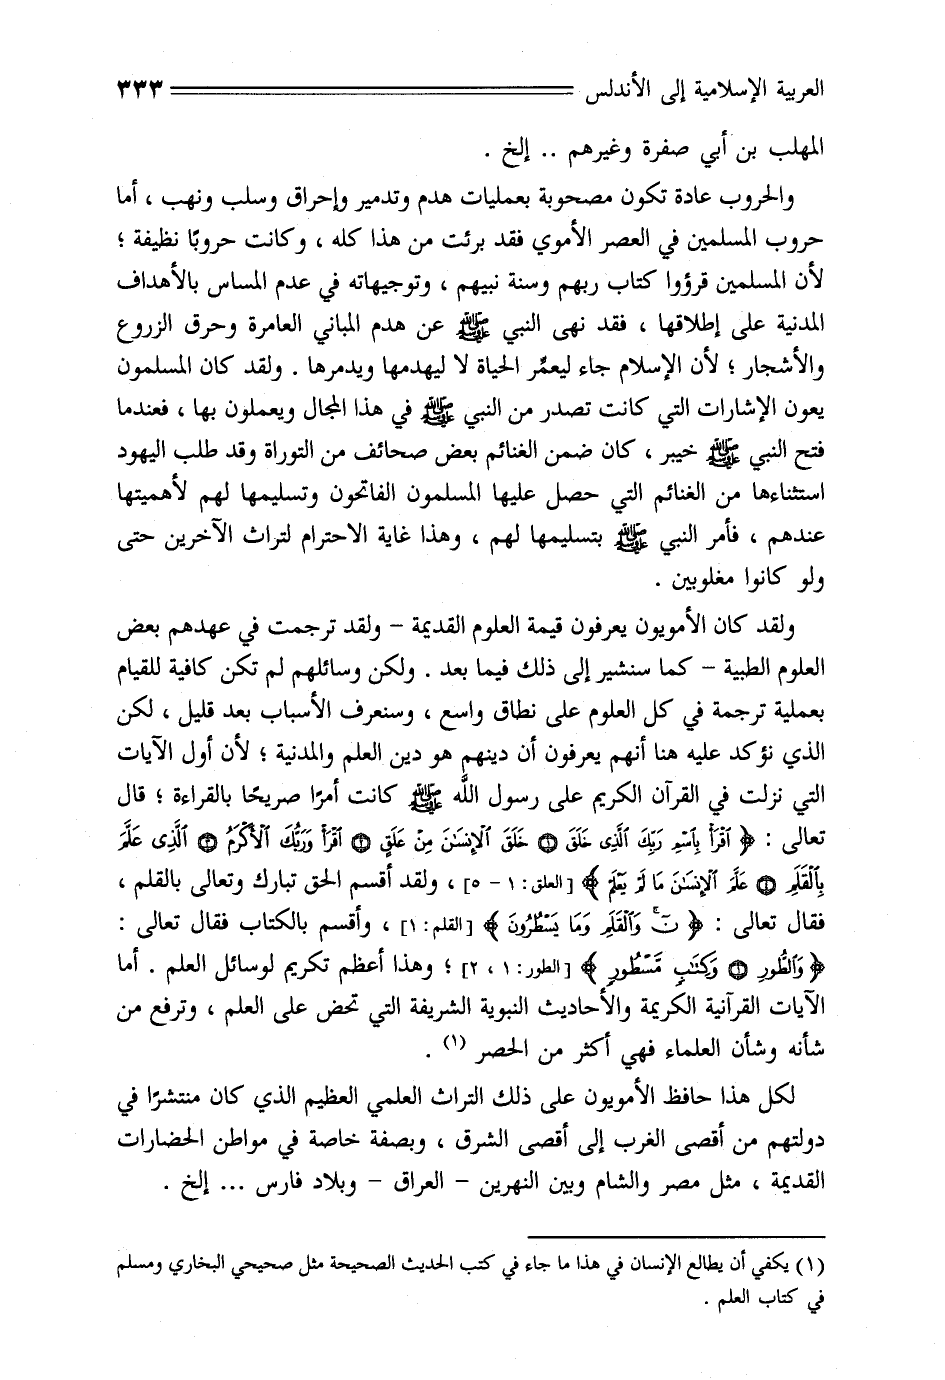 العربية الإسلامية إلى الأندلس ٣٣٣
المهلب بن أبي صفرة وغيرهم .. إلخ .
والحروب عادة تكون مصحوبة بعمليات هدم وتدمير وإحراق وسلب ونهب ، أما
حروب المسلمين في العصر الأموي فقد برئت من هذا كله ، وكانت حروبًا نظيفة ؛
لأن المسلمين قرؤوا كتاب ربهم وسنة نبيهم ، وتوجيهاته في عدم المساس بالأهداف
المدنية على إطلاقها ، فقد نهى النبي ﷺ عن هدم المباني العامرة وحرق الزروع
والأشجار ؛ لأن الإسلام جاء ليعمِّر الحياة لا ليهدمها ويدمرها . ولقد كان المسلمون
يعون الإشارات التي كانت تصدر من النبي ﷺ في هذا المجال ويعملون بها ، فعندما
فتح النبي ﷺ خيبر ، كان ضمن الغنائم بعض صحائف من التوراة وقد طلب اليهود
استثناءها من الغنائم التي حصل عليها المسلمون الفاتحون وتسليمها لهم لأهميتها
عندهم ، فأمر النبي ﷺ بتسليمها لهم ، وهذا غاية الاحترام لتراث الآخرين حتى
ولو كانوا مغلوبين .
ولقد كان الأمويون يعرفون قيمة العلوم القديمة – ولقد ترجمت في عهدهم بعض
العلوم الطبية – كما سنشير إلى ذلك فيما بعد . ولكن وسائلهم لم تكن كافية للقيام
بعملية ترجمة في كل العلوم على نطاق واسع ، وسنعرف الأسباب بعد قليل ، لكن
الذي نؤكد عليه هنا أنهم يعرفون أن دينهم هو دين العلم والمدنية ؛ لأن أول الآيات
التي نزلت في القرآن الكريم على رسول اللَّه ﷺ كانت أمرًا صريحًا بالقراءة ؛ قال
تعالى : ﴿ ٱقْرَأْ بِٱسْمِ رَبِّكَ ٱلَّذِى خَلَقَ ۝١ خَلَقَ ٱلْإِنسَٰنَ مِنْ عَلَقٍ ۝٢ ٱقْرَأْ وَرَبُّكَ ٱلْأَكْرَمُ ۝٣ ٱلَّذِى عَلَّمَ
بِٱلْقَلَمِ ۝٤ عَلَّمَ ٱلْإِنسَٰنَ مَا لَمْ يَعْلَمْ ﴾ [العلق: ١ – ٥] ، ولقد أقسم الحق تبارك وتعالى بالقلم ،
فقال تعالى : ﴿ نٓ ۚ وَٱلْقَلَمِ وَمَا يَسْطُرُونَ ﴾ [القلم: ١] ، وأقسم بالكتاب فقال تعالى :
﴿ وَٱلطُّورِ ۝١ وَكِتَٰبٍ مَّسْطُورٍ ﴾ [الطور: ١ ، ٢] ؛ وهذا أعظم تكريم لوسائل العلم . أما
الآيات القرآنية الكريمة والأحاديث النبوية الشريفة التي تحض على العلم ، وترفع من
شأنه وشأن العلماء فهي أكثر من الحصر (١) .
لكل هذا حافظ الأمويون على ذلك التراث العلمي العظيم الذي كان منتشرًا في
دولتهم من أقصى الغرب إلى أقصى الشرق ، وبصفة خاصة في مواطن الحضارات
القديمة ، مثل مصر والشام وبين النهرين – العراق – وبلاد فارس ... إلخ .
(١) يكفي أن يطالع الإنسان في هذا ما جاء في كتب الحديث الصحيحة مثل صحيحي البخاري ومسلم
في كتاب العلم .